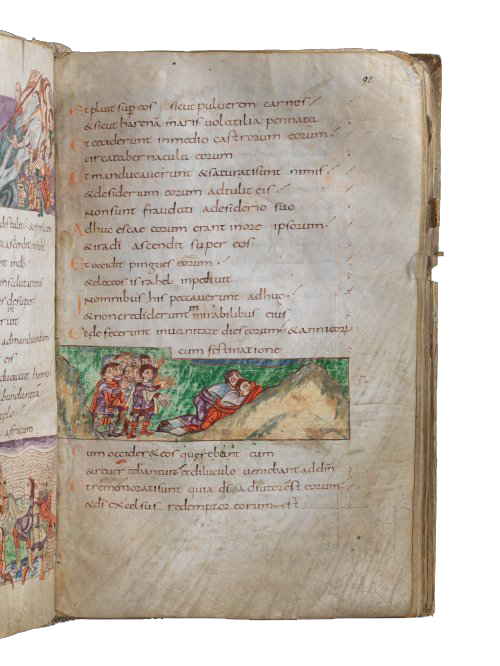 eis
africum
92
Et pluit sup eos sicut pulverem carnes
& sicut harenā maris volatilia pennata
Et ceciderunt in medio castrorum eorum
circa tabernacula eorum
Et manducaverunt & saturati sunt nimis
& desiderium eorum adtulit eis
Non sunt fraudati a desiderio suo
Adhuc escae eorum erant in ore ipsorum
& ira di ascendit super eos
Et occidit pingues eorum
& electos israhel impedivit
In omnibus his peccaverunt adhuc
& non crediderunt in mirabilibus eius
Et defecerunt in vanitate dies eorum & anni eorū
cum festinatione
Cum occider & eos querebant eum
& revertebantur et diluculo veniebant ad dm
Et rememorati sunt quia ds adiutor est eorum
& ds excelsus redemptor eorum est